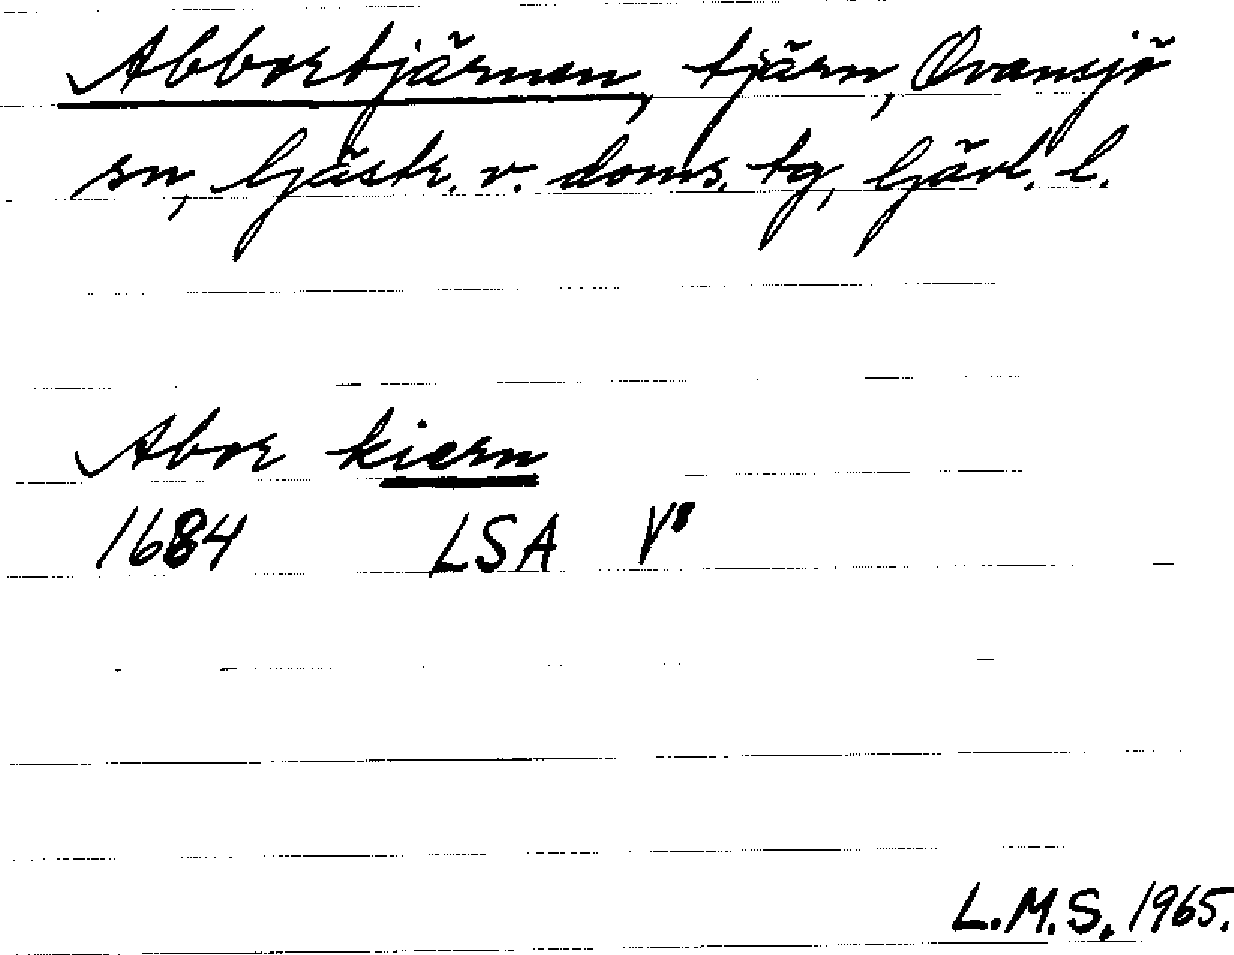 Abbortjärnen, tjärn, Ovansjö
sn, Gästr. v. doms. tg, Gävl. l.
Abor kiern
1684 LSA V8
L.M.S. 1965.